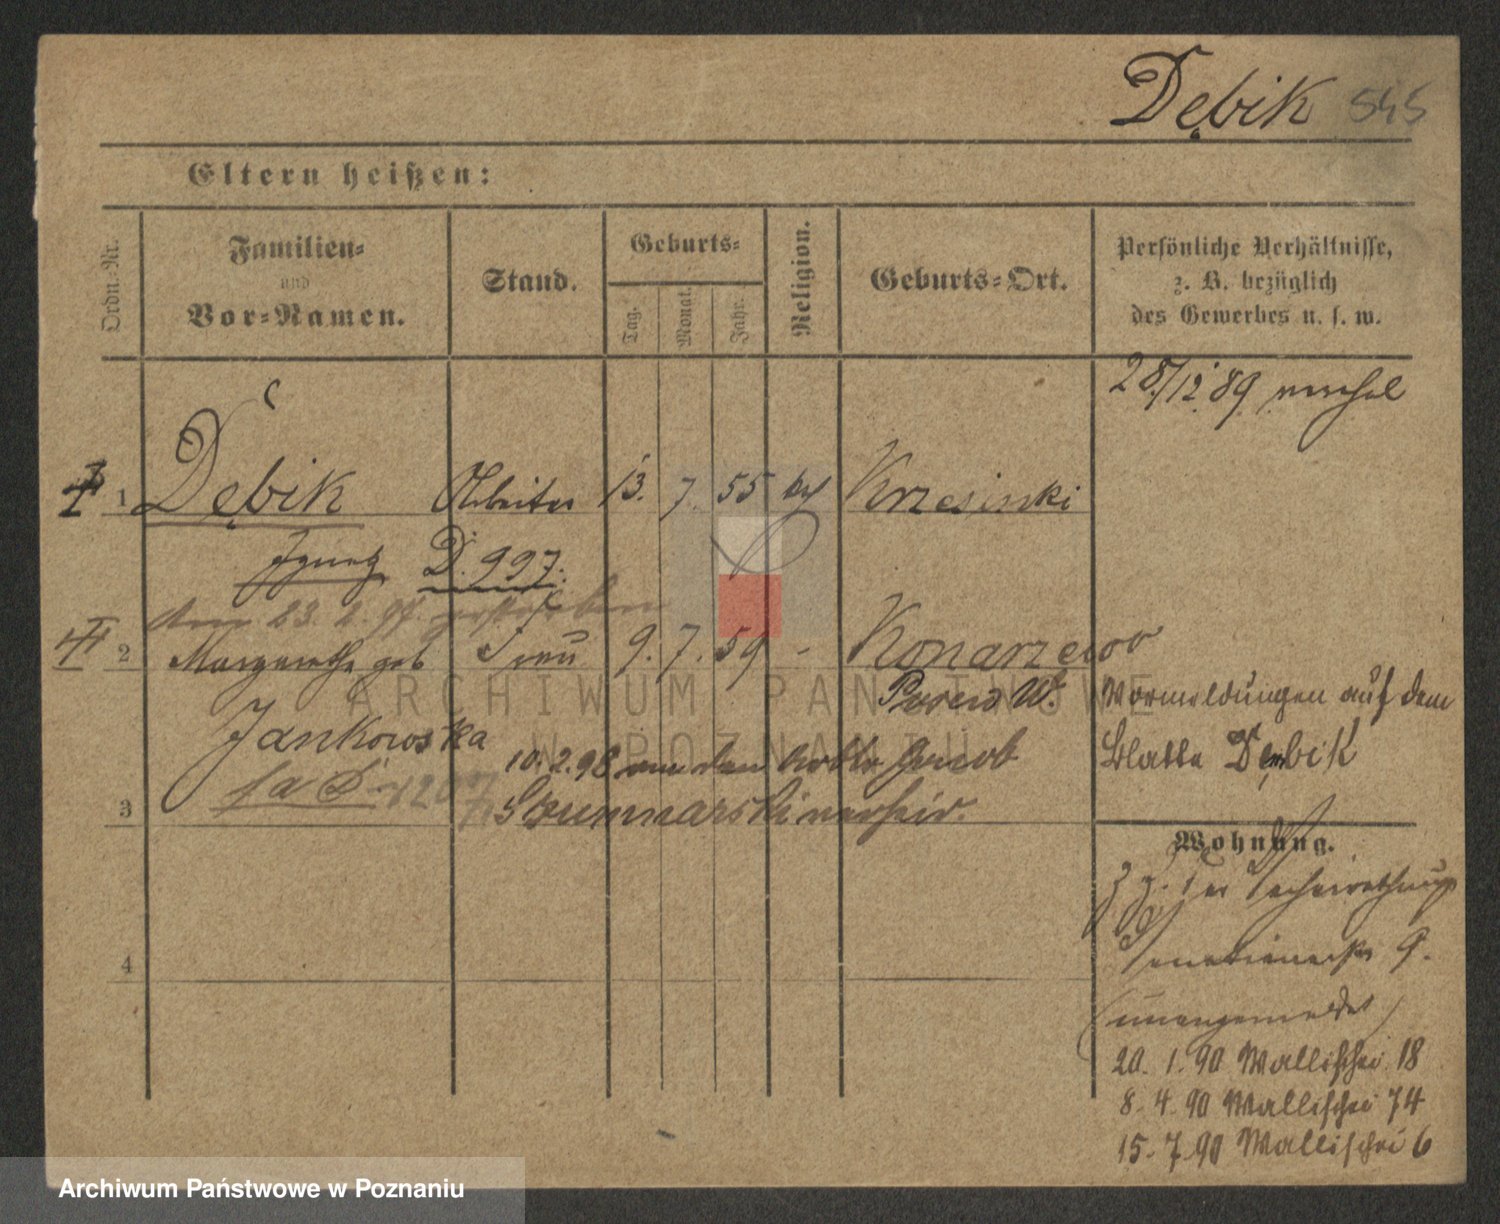 Dębik 545
Eltern heißen:
Ordn.-Nr.
Familien-
und
Vor-Namen.
Stand.
Geburts-
Tag.
Monat.
Jahr.
Religion.
Geburts-Ort.
Persönliche Verhältnisse,
z. B. bezüglich
des Gewerbes u. s. w.
28/12 89
1 Dębik Arbeiter 13. 7. 55 kath Krzesinski
Ignatz D. 997.
am 23. 2. 97. gestorben
2 Margarethe geb Frau 9. 7. 59 - Konarzewo
Posen W.
Jankowska
Vormeldungen auf dem
Blatte Dembik
10. 2. 98 an den Jacob
verheir.
3
Wohnung.
z. Z. der Verheirathung
9.
(unangemeldet)
4
20. 1. 90 Wallischei 18
8. 4. 90 Wallischei 74
15. 7. 90 Wallischei 6
ARCHIWUM PAŃSTWOWE
W POZNANIU
Archiwum Państwowe w Poznaniu